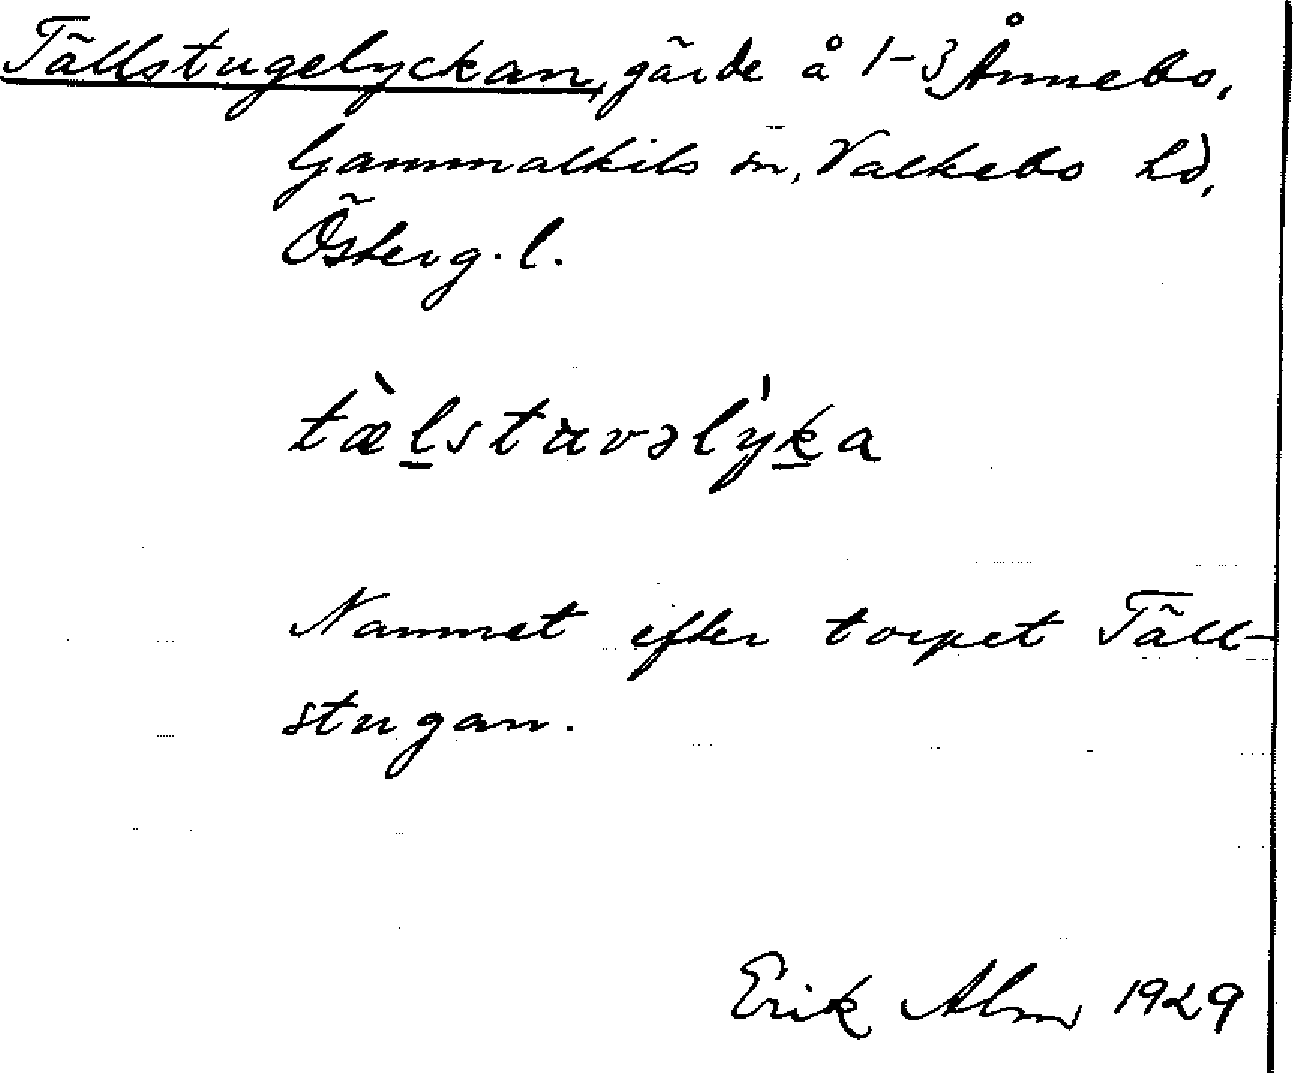 Tällstugelyckan, gärde å 1-3 Ånnebo,
Gammalkils sn, Valkebo hd,
Österg. l.
tæ̀l̲stuvəlýk̲a
Namnet efter torpet Täll-
stugan.
Erik Alm 1929